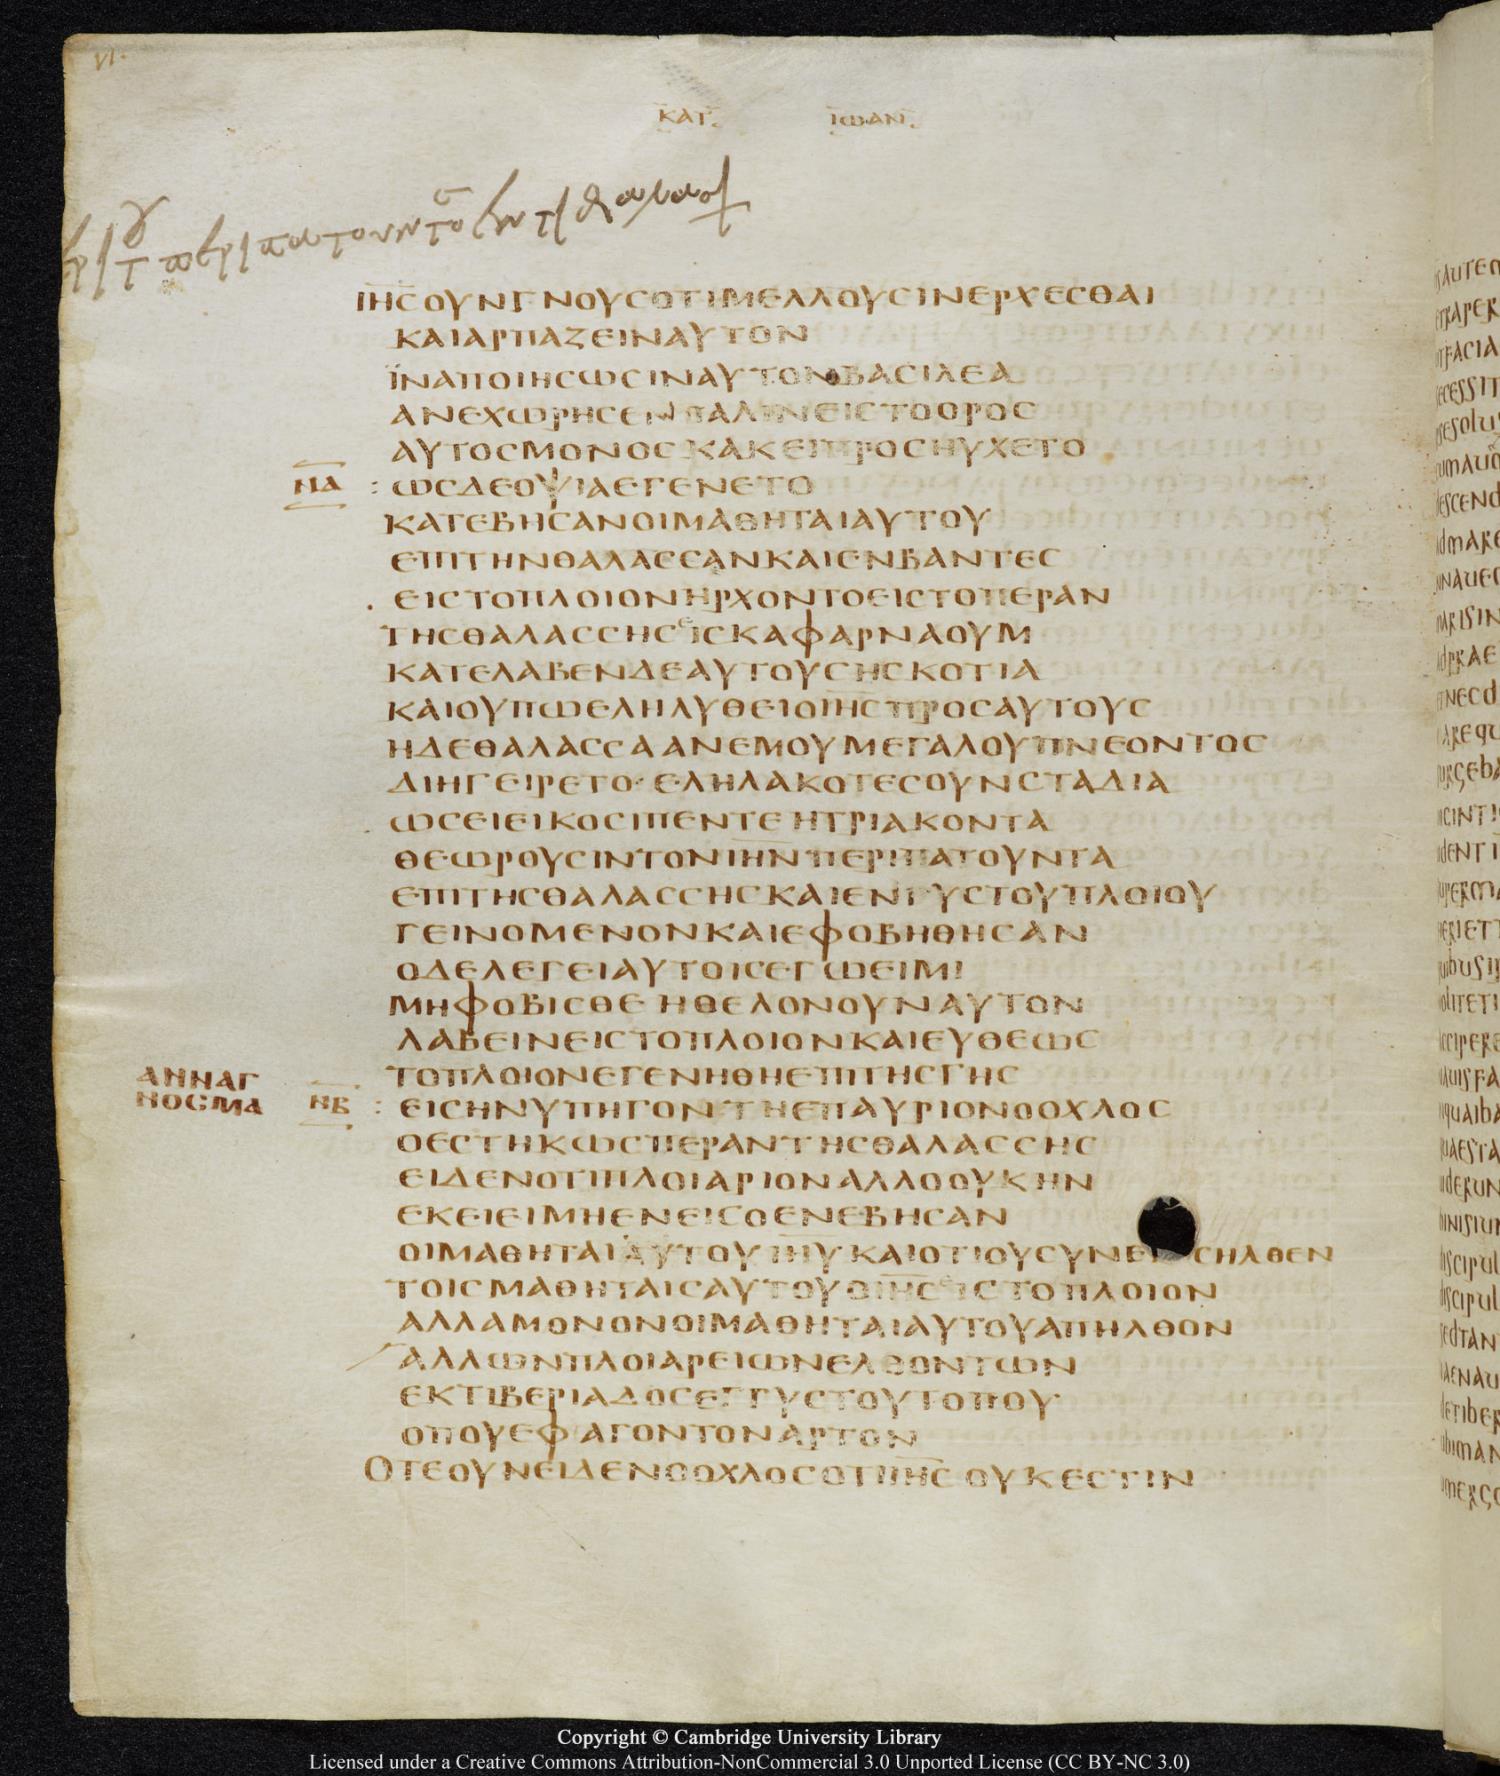 VI.
ΚΑΤ. ΙΩΑΝ.
ΙΗΣ ΟΥΝ ΓΝΟΥΣ ΟΤΙ ΜΕΛΛΟΥΣΙΝ ΕΡΧΕΣΘΑΙ
ΚΑΙ ΑΡΠΑΖΕΙΝ ΑΥΤΟΝ
ΪΝΑ ΠΟΙΗΣΩΣΙΝ ΑΥΤΟΝ ΒΑΣΙΛΕΑ
ΑΝΕΧΩΡΗΣΕΝ ΠΑΛΙΝ ΕΙΣ ΤΟ ΟΡΟΣ
ΑΥΤΟΣ ΜΟΝΟΣ ΚΑΚΕΙ ΠΡΟΣΗΥΧΕΤΟ
ΝΑ : ΩΣ ΔΕ ΟΨΙΑ ΕΓΕΝΕΤΟ
ΚΑΤΕΒΗΣΑΝ ΟΙ ΜΑΘΗΤΑΙ ΑΥΤΟΥ
ΕΠΙ ΤΗΝ ΘΑΛΑΣΣΑΝ ΚΑΙ ΕΝΒΑΝΤΕΣ
ΕΙΣ ΤΟ ΠΛΟΙΟΝ ΗΡΧΟΝΤΟ ΕΙΣ ΤΟ ΠΕΡΑΝ
ΤΗΣ ΘΑΛΑΣΣΗΣ ΕΙΣ ΚΑΦΑΡΝΑΟΥΜ
ΚΑΤΕΛΑΒΕΝ ΔΕ ΑΥΤΟΥΣ Η ΣΚΟΤΙΑ
ΚΑΙ ΟΥΠΩ ΕΛΗΛΥΘΕΙ Ο ΙΗΣ ΠΡΟΣ ΑΥΤΟΥΣ
Η ΔΕ ΘΑΛΑΣΣΑ ΑΝΕΜΟΥ ΜΕΓΑΛΟΥ ΠΝΕΟΝΤΟΣ
ΔΙΗΓΕΙΡΕΤΟ· ΕΛΗΛΑΚΟΤΕΣ ΟΥΝ ΣΤΑΔΙΑ
ΩΣΕΙ ΕΙΚΟΣΙ ΠΕΝΤΕ Η ΤΡΙΑΚΟΝΤΑ
ΘΕΩΡΟΥΣΙΝ ΤΟΝ ΙΗΝ ΠΕΡΙΠΑΤΟΥΝΤΑ
ΕΠΙ ΤΗΣ ΘΑΛΑΣΣΗΣ ΚΑΙ ΕΝΓΥΣ ΤΟΥ ΠΛΟΙΟΥ
ΓΕΙΝΟΜΕΝΟΝ ΚΑΙ ΕΦΟΒΗΘΗΣΑΝ
Ο ΔΕ ΛΕΓΕΙ ΑΥΤΟΙΣ ΕΓΩ ΕΙΜΙ
ΜΗ ΦΟΒΙΣΘΕ ΗΘΕΛΟΝ ΟΥΝ ΑΥΤΟΝ
ΛΑΒΕΙΝ ΕΙΣ ΤΟ ΠΛΟΙΟΝ ΚΑΙ ΕΥΘΕΩΣ
ΤΟ ΠΛΟΙΟΝ ΕΓΕΝΗΘΗ ΕΠΙ ΤΗΣ ΓΗΣ
ΑΝΝΑΓ
ΝΟΣΜΑ
ΝΒ : ΕΙΣ ΗΝ ΥΠΗΓΟΝ ΤΗ ΕΠΑΥΡΙΟΝ Ο ΟΧΛΟΣ
Ο ΕΣΤΗΚΩΣ ΠΕΡΑΝ ΤΗΣ ΘΑΛΑΣΣΗΣ
ΕΙΔΕΝ ΟΤΙ ΠΛΟΙΑΡΙΟΝ ΑΛΛΟ ΟΥΚ ΗΝ
ΕΚΕΙ ΕΙ ΜΗ ΕΝ ΕΙΣ Ο ΕΝΕΒΗΣΑΝ
ΟΙ ΜΑΘΗΤΑΙ ΑΥΤΟΥ ΙΗΥ ΚΑΙ ΟΤΙ ΟΥ ΣΥΝΕΙΣΗΛΘΕΝ
ΤΟΙΣ ΜΑΘΗΤΑΙΣ ΑΥΤΟΥ Ο ΙΗΣ ΕΙΣ ΤΟ ΠΛΟΙΟΝ
ΑΛΛΑ ΜΟΝΟΝ ΟΙ ΜΑΘΗΤΑΙ ΑΥΤΟΥ ΑΠΗΛΘΟΝ
ΑΛΛΩΝ ΠΛΟΙΑΡΕΙΩΝ ΕΛΘΟΝΤΩΝ
ΕΚ ΤΙΒΕΡΙΑΔΟΣ ΕΓΓΥΣ ΤΟΥ ΤΟΠΟΥ
ΟΠΟΥ ΕΦΑΓΟΝ ΤΟΝ ΑΡΤΟΝ
ΟΤΕ ΟΥΝ ΕΙΔΕΝ Ο ΟΧΛΟΣ ΟΤΙ ΙΗΣ ΟΥΚ ΕΣΤΙΝ
Copyright © Cambridge University Library
Licensed under a Creative Commons Attribution-NonCommercial 3.0 Unported License (CC BY-NC 3.0)